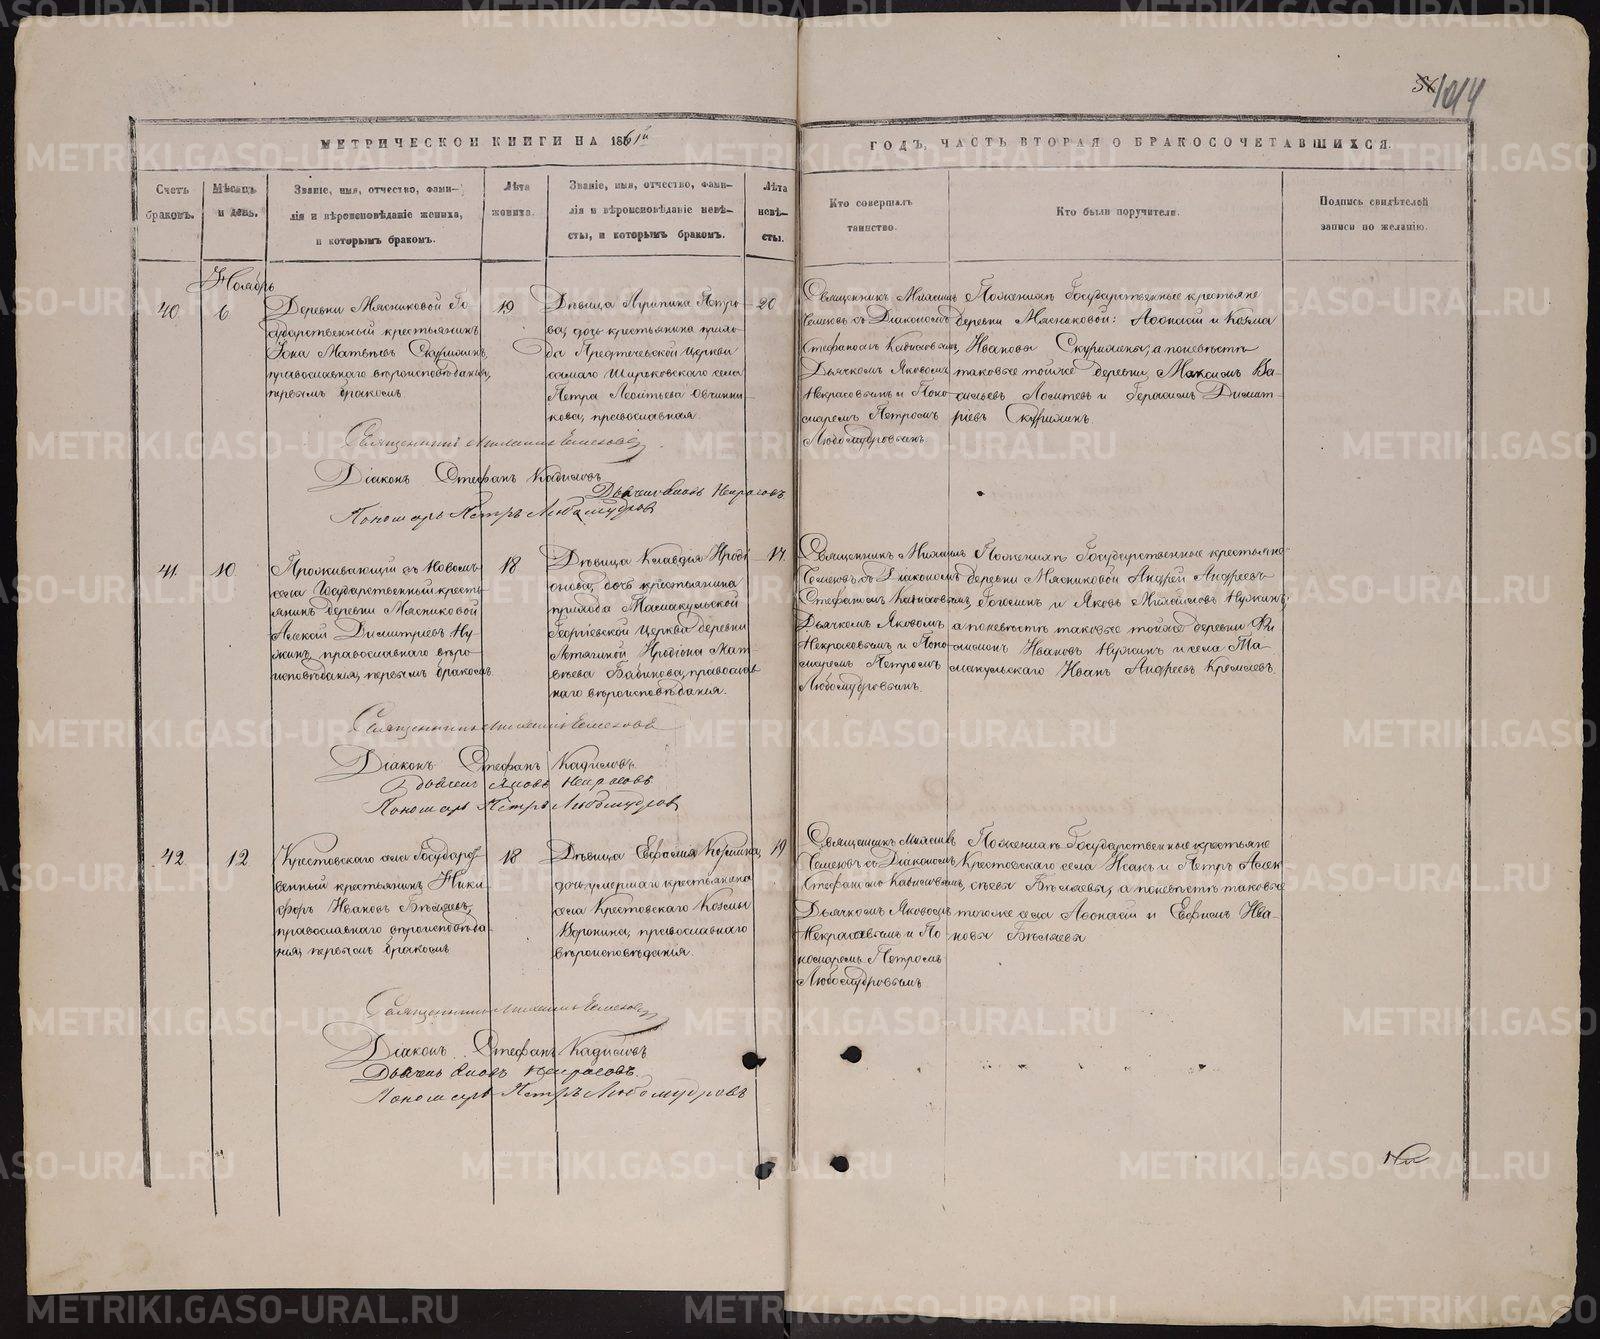 1014
МЕТРИЧЕСКОЙ КНИГИ НА 1861й
ГОДЪ, ЧАСТЬ ВТОРАЯ О БРАКОСОЧЕТАВШИХСЯ.
Счетъ
браковъ.
Мѣсяцъ
и день.
Званіе, имя, отчество, фами-
лія и вѣроисповѣданіе жениха,
и которымъ бракомъ.
Лѣта
жениха.
Званіе, имя, отчество, фами-
лія и вѣроисповѣданіе невѣ-
сты, и которымъ бракомъ.
Лѣта
невѣ-
сты.
Кто совершалъ
таинство.
Кто были поручители.
Подпись свидѣтелей
записи по желанію.
Ноябрь
40.
6
Деревни Мясниковой Го-
сударственный крестьянинъ
Іона Матвѣевъ Скурихинъ,
православнаго вѣроисповѣданія,
первымъ бракомъ
19
Дѣвица Агрипина Петро-
ва, дочь крестьянина прихо-
да Предтечевской церкви
самаго Широковскаго села
Петра Леонтьева Овчинни-
кова, православная.
20
Священникъ
съ Діакономъ
Стефаномъ Кадисовымъ,
Дьячкомъ Яковомъ
Некрасовымъ и Поно-
маремъ Петромъ
Любомудровымъ
По женихѣ Государственные крестьяне
деревни Мясниковой: Аѳонасій и Козма
Ивановы Скурихины, а по невѣстѣ
таковые тойже деревни, Максимъ Ва-
сильевъ и Герасимъ Димит-
ріевъ Скурихинъ.
Священникъ
Діаконъ Стефанъ Кадисовъ
Дьячекъ Яковъ Некрасовъ
Пономарь Петръ Любомудровъ
41.
10.
Проживающій въ Новомъ
селѣ Государственный кресть-
янинъ деревни Мясниковой
Алексій Димитріевъ Ну-
жинъ, православнаго вѣро-
исповѣданія, первымъ бракомъ
18
Дѣвица Клавдія Ироді-
онова, дочь крестьянина
прихода Тамакульской
Георгіевской Церкви деревни
Иродіона Мат-
вѣева Бабинова, православ-
наго вѣроисповѣданія.
17.
Священникъ
съ Діакономъ
Стефаномъ Кадисовымъ,
Дьячкомъ Яковомъ
Некрасовымъ и Поно-
маремъ Петромъ
Любомудровымъ.
По женихѣ Государственные крестьяне
деревни Мясниковой Андрей Андреевъ
и Яковъ Михайловъ Нужинъ,
а по невѣстѣ таковые тойже деревни Фи-
Ивановъ Нужинъ и села Та-
макульскаго Иванъ Андреевъ
Священникъ
Діаконъ Стефанъ Кадисовъ.
Дьячекъ Яковъ Некрасовъ
Пономарь Петръ Любомудровъ
42.
12
Крестовскаго села Государст-
венный крестьянинъ Ники-
форъ Ивановъ Бѣляевъ,
православнаго вѣроисповѣда-
нія, первымъ бракомъ
18
Дѣвица Евфимія Козмина,
дочь умершаго крестьянина
села Крестовскаго Козмы
Воронина, православнаго
вѣроисповѣданія.
19
Священникъ
съ Діакономъ
Стефаномъ Кадисовымъ,
Дьячкомъ Яковомъ
Некрасовымъ и По-
номаремъ Петромъ
Любомудровымъ
По женихѣ Государственные крестьяне
Крестовскаго села Исакъ и Петръ Алек-
сѣевы Бѣляевы, а по невѣстѣ таковые
тогоже села Аѳонасій и Ефимъ Ива-
новы Бѣляевы
Священникъ
Діаконъ Стефанъ Кадисовъ
Дьячекъ Яковъ Некрасовъ.
Пономарь Петръ Любомудровъ
METRIKI.GASO-URAL.RU